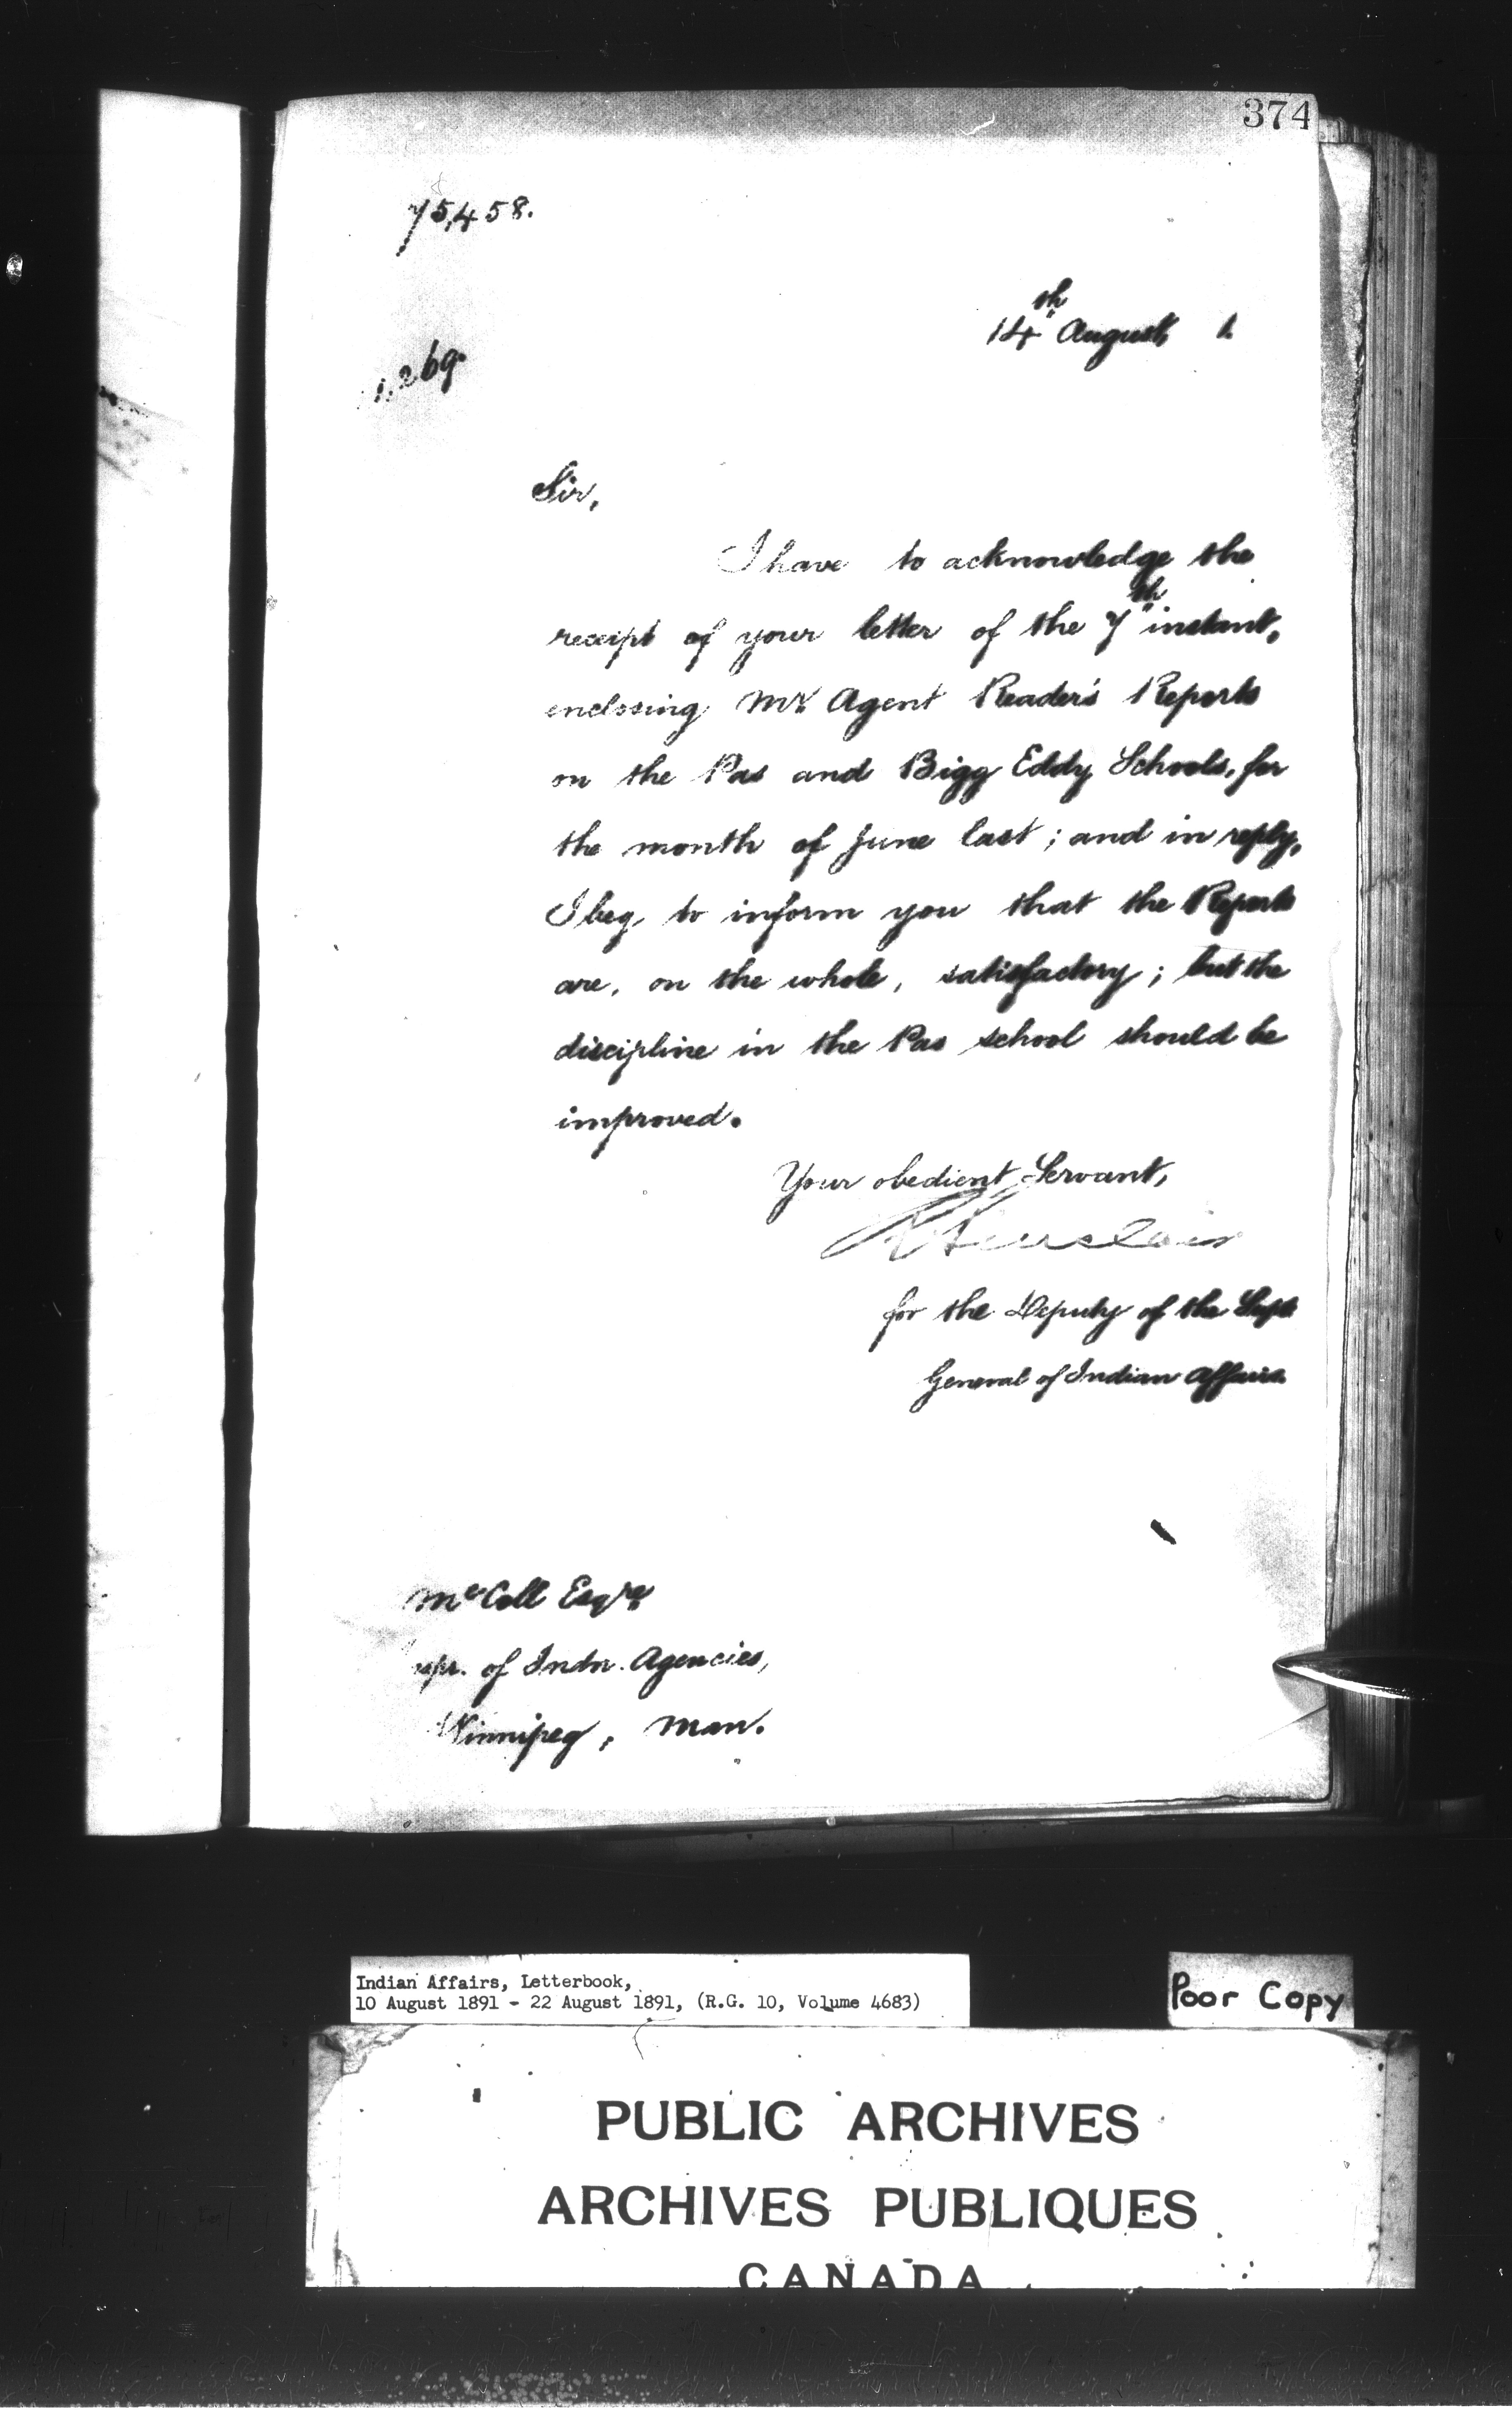 374
75,458.
14th August 1
1.269
Sir,
I have to acknowledge the
receipt of your letter of the 7th instant,
enclosing Mr. Agent Reader's Reports
on the Pas and Bigg Eddy Schools, for
the month of June last; and in reply,
I beg to inform you that the Reports
are, on the whole, satisfactory; but the
discipline in the Pas school should be
improved.
Your obedient Servant,
R Sinclair
for the Deputy of the Supt
General of Indian Affairs
McColl Esqre
of Indn. Agencies,
Winnipeg, Man.
Indian Affairs, Letterbook,
10 August 1891 - 22 August 1891, (R.G. 10, Volume 4683)
Poor Copy
PUBLIC ARCHIVES
ARCHIVES PUBLIQUES
CANADA